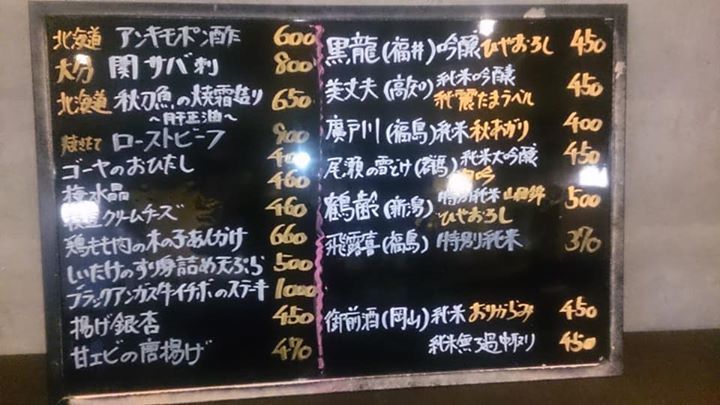 北海道 アンキモポン酢 600
大分 関サバ刺 800
北海道 秋刀魚の焼霜造り 650
～肝正油～
焼きたて ローストビーフ 900
ゴーヤのおひたし 400
梅水晶 460
クリームチーズ 460
鶏もも肉の木の子あんかけ 660
しいたけのすり身詰め天ぷら 500
ブラックアンガス牛イチボのステーキ 1000
揚げ銀杏 450
甘エビの唐揚げ 470
黒龍(福井)吟醸ひやおろし 450
美丈夫(高知)純米吟醸 450
純麗たまラベル
廣戸川(福島)純米秋あがり 400
尾瀬の雪どけ(群馬)純米大吟醸 450
鶴齢(新潟)特別純米 山田錦 500
ひやおろし
飛露喜(福島)特別純米 370
御前酒(岡山)純米おりがらみ 450
純米無ろ過中取り 450